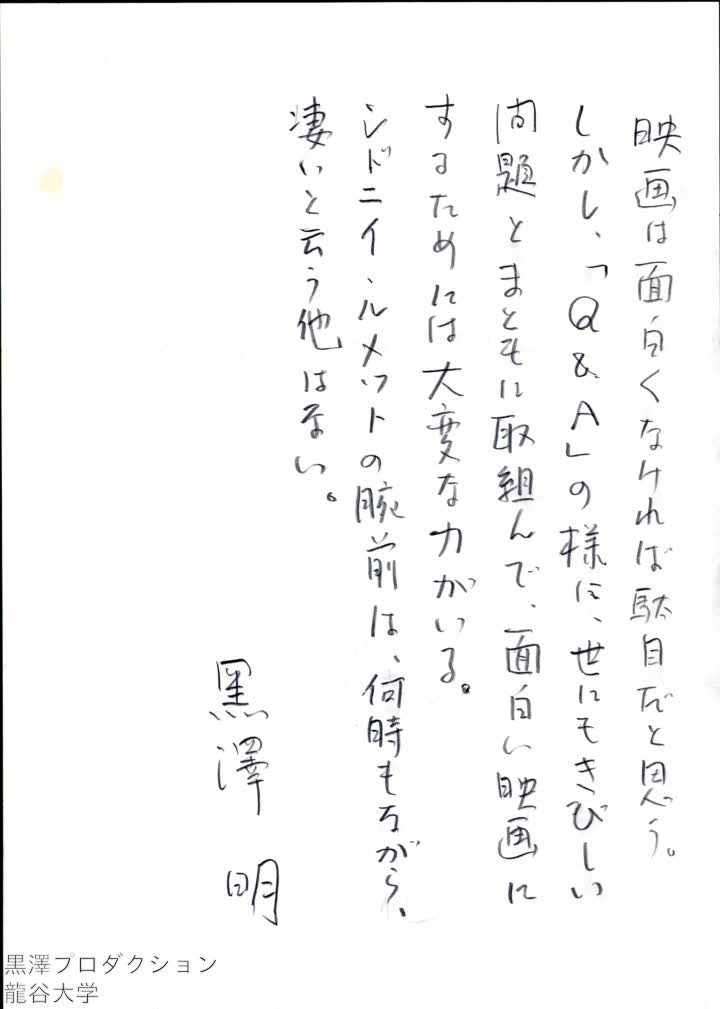 映画は面白くなければ駄目だと思う。
しかし、「Q&A」の様に、世にもきびしい
問題とまともに取組んで、面白い映画に
するためには大変な力がいる。
シドニイ・ルメットの腕前は、何時もながら、
凄いと云う他はない。
黒澤 明
黒澤プロダクション
龍谷大学